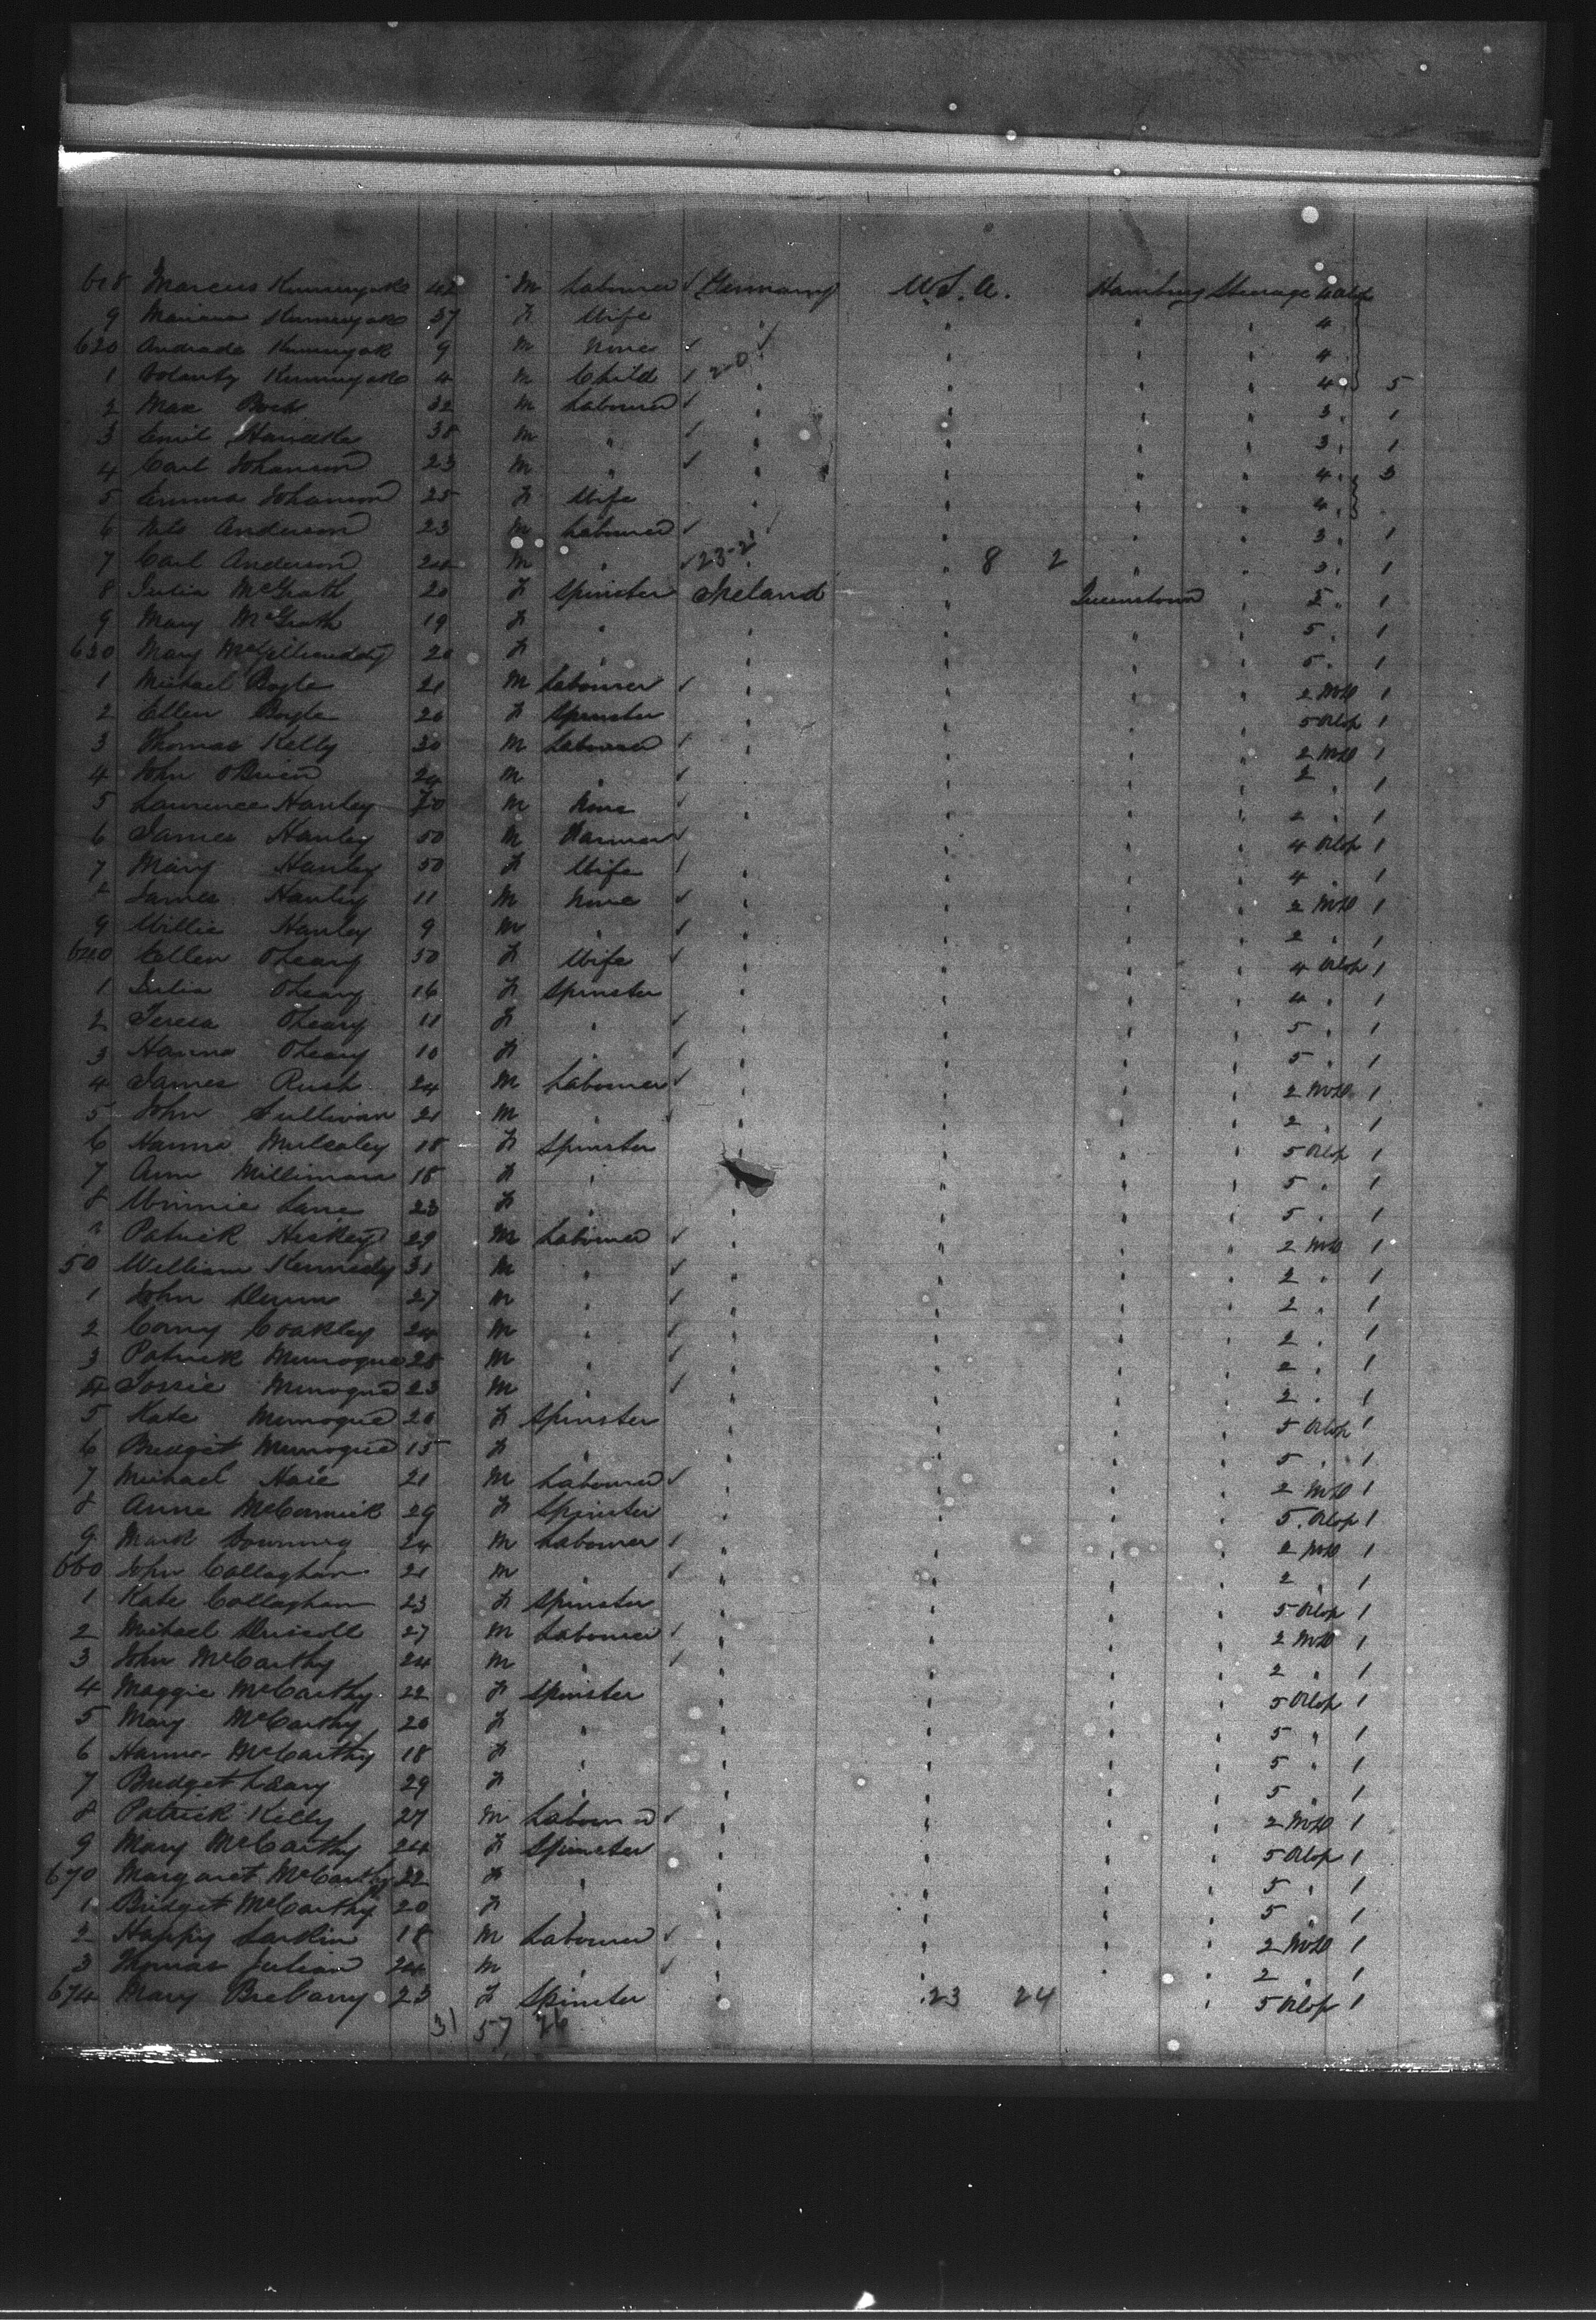 618 Marcus 42 M Labourer Germany U.S.A. Hamburg Steerage 4 Alop
9 37 F Wife " " " " 4 "
620 9 M None " " " " 4 "
1 4 M Child 2-0 " " " " 4 " 5
2 Max Bock 32 M Labourer " " " " 3 " 1
3 Emil 38 M " " " " " 3 " 1
4 Carl Johanson 23 M " " " " " 4 " 3
5 Emma Johanson 25 F Wife " " " " 4 "
6 Nils Anderson 23 M Labourer " " " " 3 " 1
7 Carl Anderson 24 M " 23-2 " " 8 2 " " 3 " 1
8 Julia McGrath 20 F Spinster Ireland " Queenstown " 5 " 1
9 Mary McGrath 19 F " " " " " 5 " 1
630 Mary 20 F " " " " " 5 " 1
1 Michael Boyle 21 M Labourer " " " " 2 1
2 Ellen Boyle 20 F Spinster " " " " 5 Alop 1
3 Thomas Kelly 30 M Labourer " " " " 2 1
4 John O'Brien 24 M " " " " " 2 " 1
5 Laurence Hanley 70 M None " " " " 2 " 1
6 James Hanley 50 M Farmer " " " " 4 Alop 1
7 Mary Hanley 50 F Wife " " " " 4 " 1
8 James Hanley 11 M None " " " " 2 1
9 Willie Hanley 9 M " " " " " 2 " 1
640 Ellen O'Leary 50 F Wife " " " " 4 Alop 1
1 Julia O'Leary 16 F Spinster " " " " 4 " 1
2 Teresa O'Leary 11 F " " " " " 5 " 1
3 Hanna O'Leary 10 F " " " " " 5 " 1
4 James Rush 24 M Labourer " " " " 2 1
5 John Sullivan 21 M " " " " " 2 " 1
6 Hanna Mulcaley 18 F Spinster " " " " 5 Alop 1
7 Ann 18 F " " " " " 5 " 1
8 Winnie Lane 23 F " " " " " 5 " 1
9 Patrick Heskey 29 M Labourer " " " " 2 1
50 William Kennedy 31 M " " " " " 2 " 1
1 John Dunn 27 M " " " " " 2 " 1
2 Corny Coakley 24 M " " " " " 2 " 1
3 Patrick Minnogue 28 M " " " " " 2 " 1
4 Minnogue 23 M " " " " " 2 " 1
5 Kate Minnogue 20 F Spinster " " " " 5 Alop 1
6 Bridget Minnogue 15 F " " " " " 5 " 1
7 Michael 21 M Labourer " " " " 2 1
8 Anne McCormick 29 F Spinster " " " " 5 Alop 1
9 Mark Downing 24 M Labourer " " " " 2 1
660 John Callaghan 21 M " " " " " 2 " 1
1 Kate Callaghan 23 F Spinster " " " " 5 Alop 1
2 Michael Driscoll 27 M Labourer " " " " 2 1
3 John McCarthy 24 M " " " " " 2 " 1
4 Maggie McCarthy 22 F Spinster " " " " 5 Alop 1
5 Mary McCarthy 20 F " " " " " 5 " 1
6 Hanna McCarthy 18 F " " " " " 5 " 1
7 Bridget Leary 29 F " " " " " 5 " 1
8 Patrick Kelly 27 M Labourer " " " " 2 1
9 Mary McCarthy 24 F Spinster " " " " 5 Alop 1
670 Margaret McCarthy 22 F " " " " " 5 " 1
1 Bridget McCarthy 20 F " " " " " 5 " 1
2 Larkin 18 M Labourer " " " " 2 1
3 Thomas Julian 24 M " " " " " 2 " 1
674 Mary 23 F Spinster " " 23 24 " 5 Alop 1
31 57 26